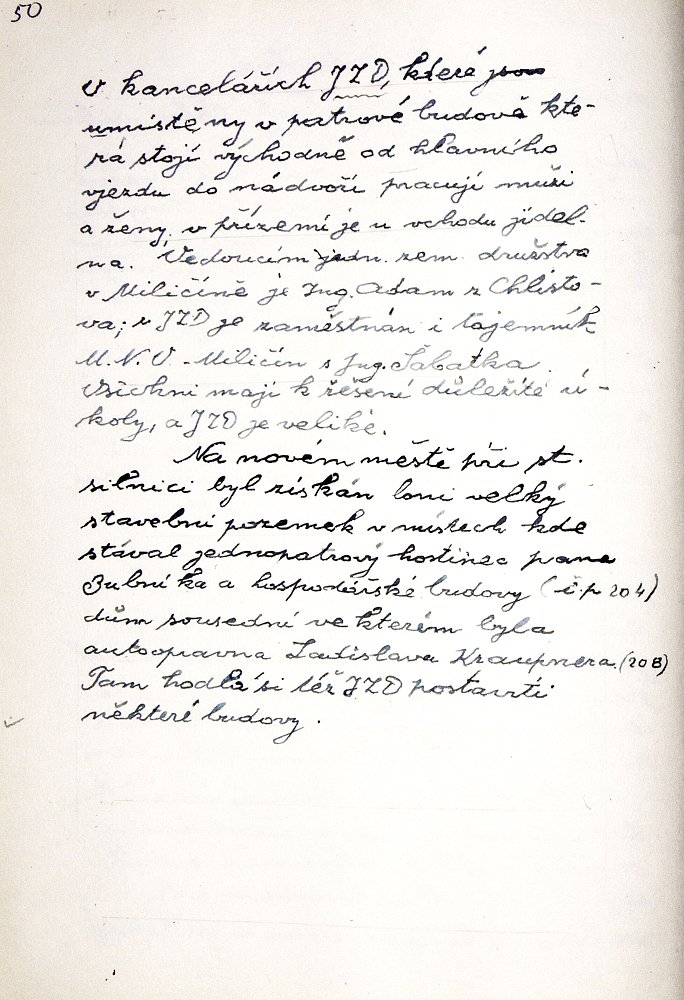 50
V kancelářích JZD, které jsou
umístěny v patrové budově kte-
rá stojí východně od hlavního
vjezdu do nádvoří pracují muži
a ženy, v přízemí je u vchodu jídel-
na. Vedoucím jedn. zem. družstva
v Miličíně je Ing. Adam z Chlísto-
va; v JZD je zaměstnán i tajemník
M.N.V. Miličín s Ing. Šabatka.
Všichni mají k řešení důležité ú-
koly, a JZD je veliké.
Na novém městě při st.
silnici byl získán loni velký
stavební pozemek v místech kde
stával jednopatrový hostinec pana
Zubníka a hospodářské budovy (č.p 204)
dům sousední ve kterém byla
autoopravna Ladislava Kraupnera. (208)
Tam hodlá si též JZD postaviti
některé budovy.